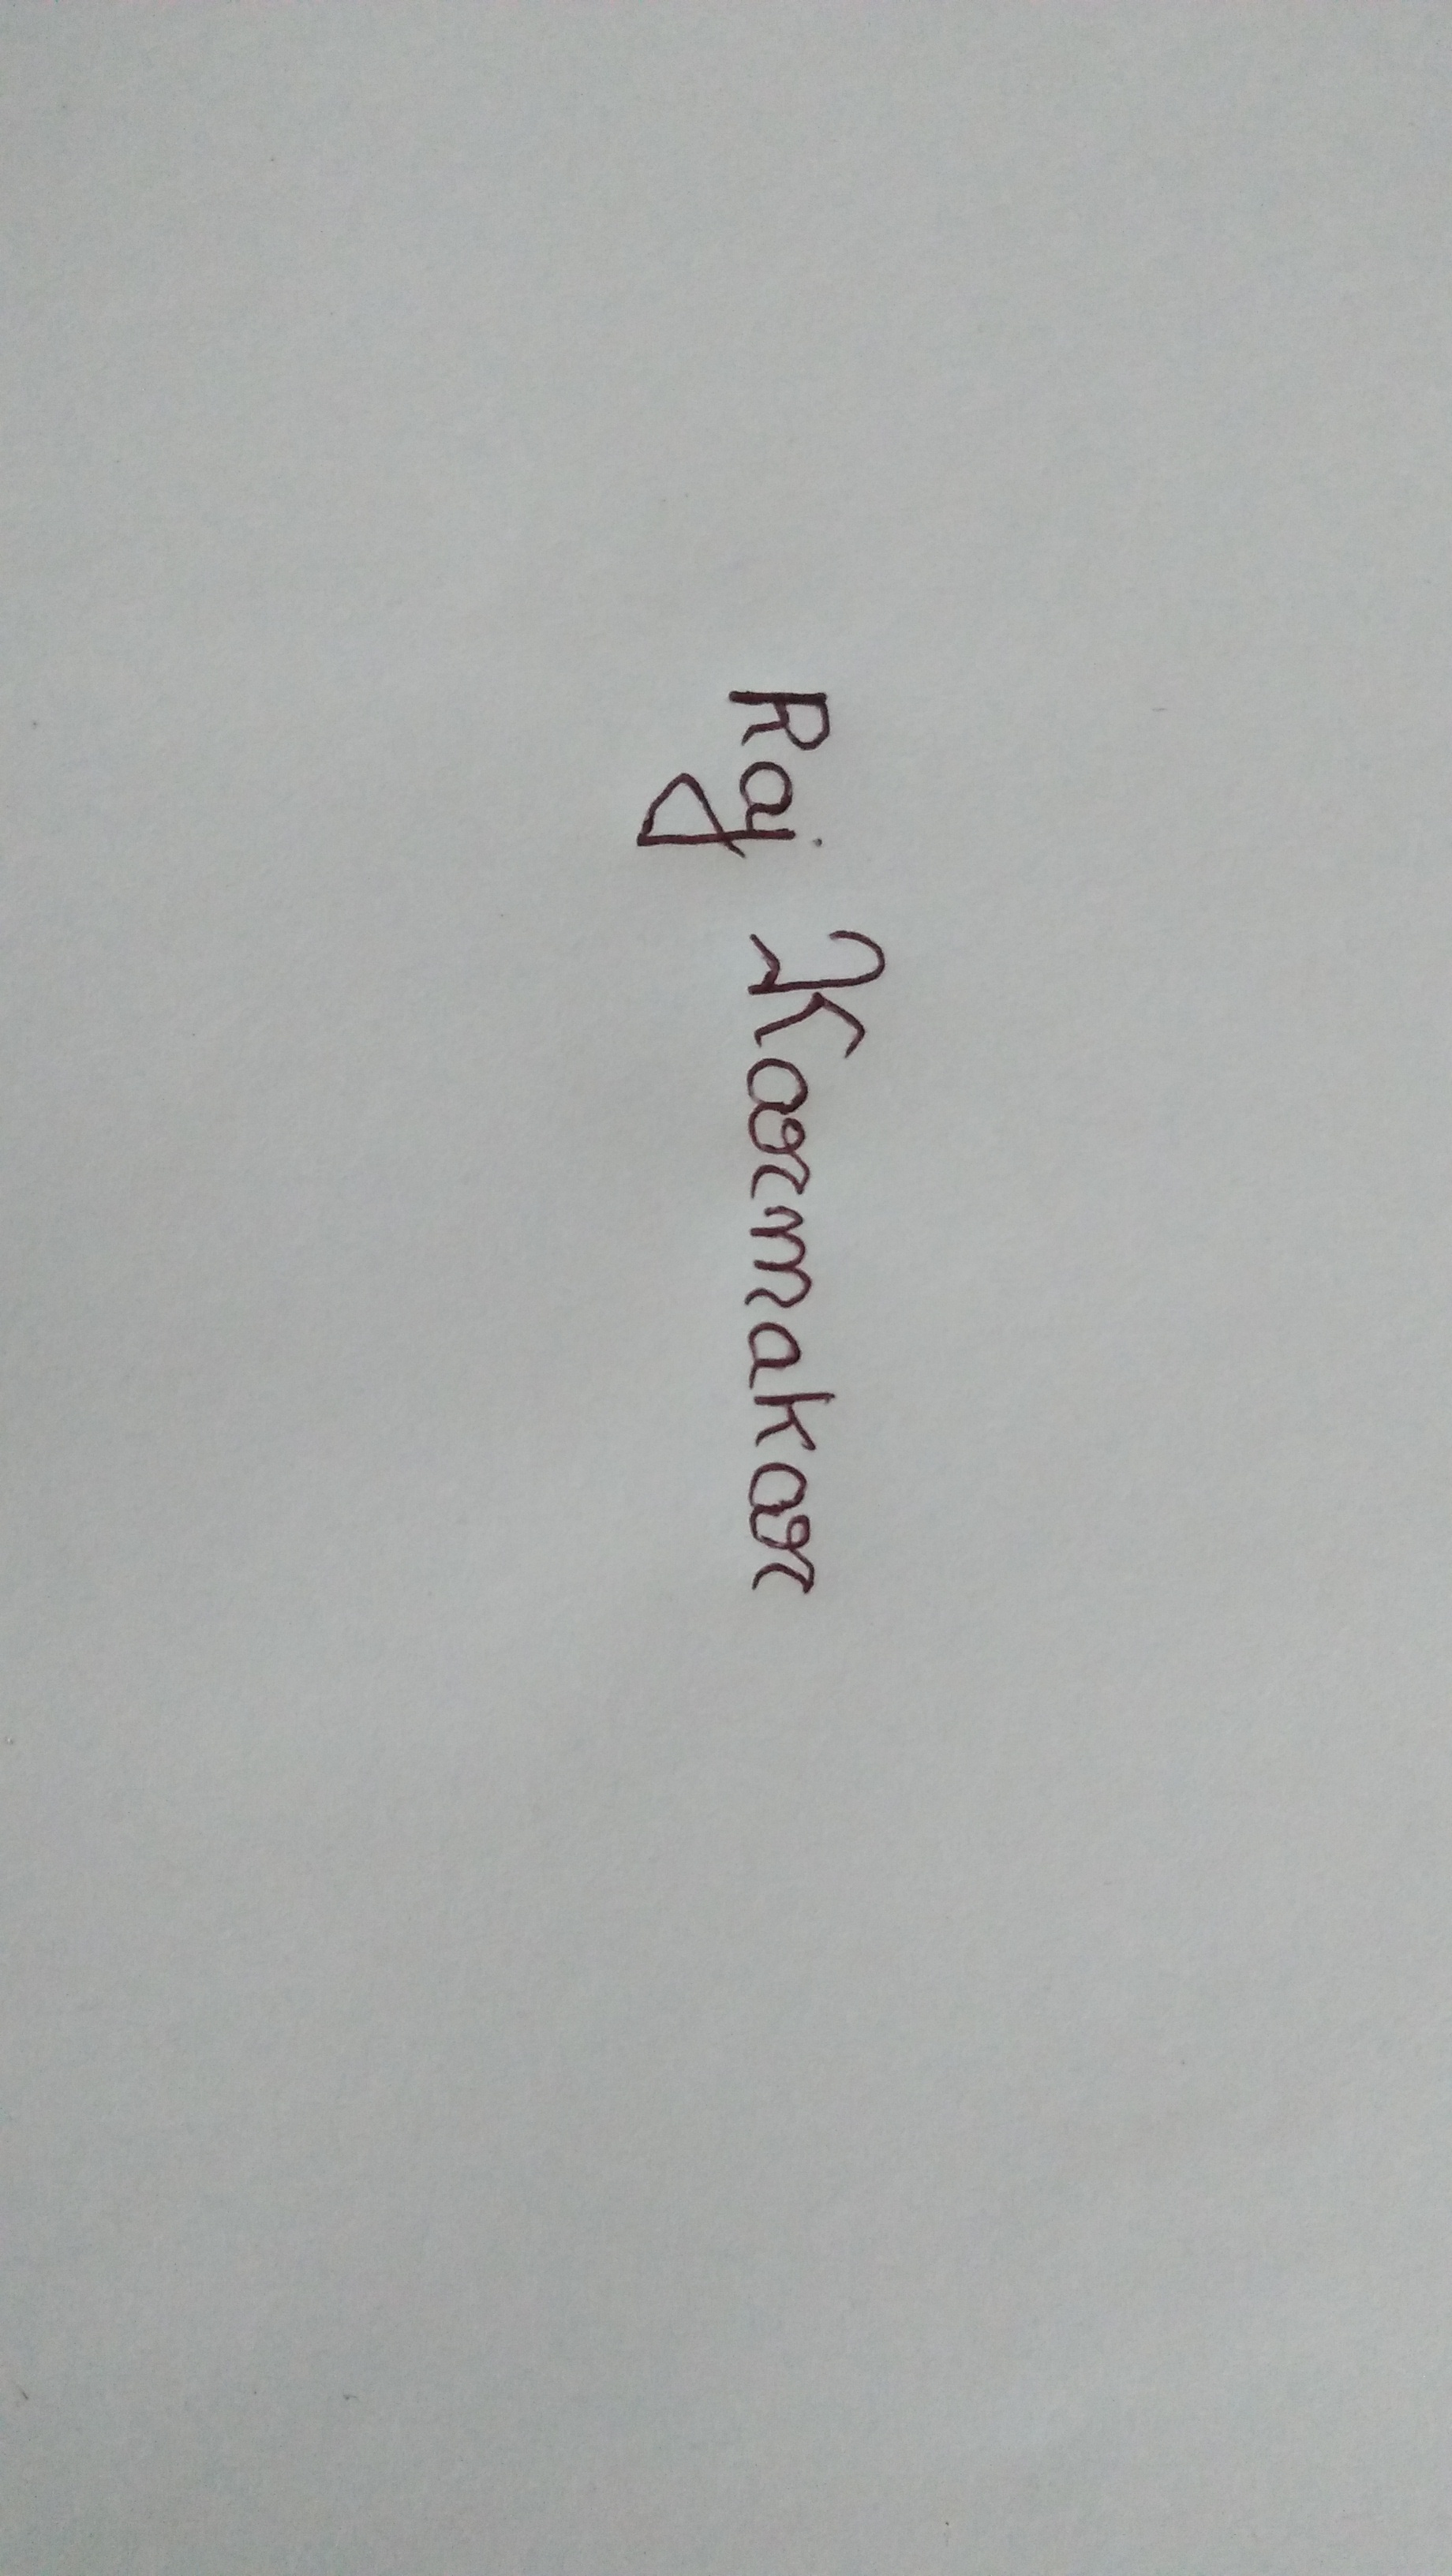 Raj Karmakar